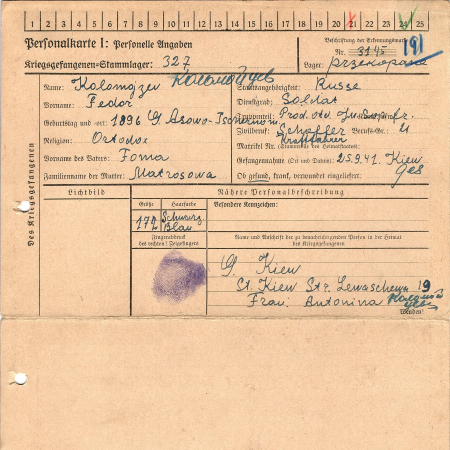 1 2 3 4 5 6 7 8 9 10 11 12 13 14 15 16 17 18 19 20 21 22 23 24 25
Personalkarte I: Personelle Angaben
Kriegsgefangenen-Stammlager: 327
Beschriftung der Erkennungsmarke
Nr. 3145 191
Lager: Przekopana
Des Kriegsgefangenen
Name: Kolomyzev Коломойцев
Vorname: Fedor
Geburtstag und -ort: 1896 G. Asowo-Tschernom.
Religion: Ortodox
Vorname des Vaters: Foma
Familienname der Mutter: Matrosowa
Staatsangehörigkeit: Russe
Dienstgrad: Soldat
Truppenteil: Prod. otd.
Zivilberuf: Schoffer Berufs-Gr.: 4
Kraftfahrer
Matrikel Nr. (Stammrolle des Heimatstaates):
Gefangennahme (Ort und Datum): 25.9.41. Kiew
Ob gesund, krank, verwundet eingeliefert: ges
Lichtbild
Nähere Personalbeschreibung
Größe Haarfarbe Besondere Kennzeichen:
172 Schwarz
Blau
Fingerabdruck
des rechten! Zeigefingers
Name und Anschrift der zu benachrichtigenden Person in der Heimat
des Kriegsgefangenen
G. Kiew
St. Kiew Str. Lewaschewa 19
Frau: Antonina
Wenden!